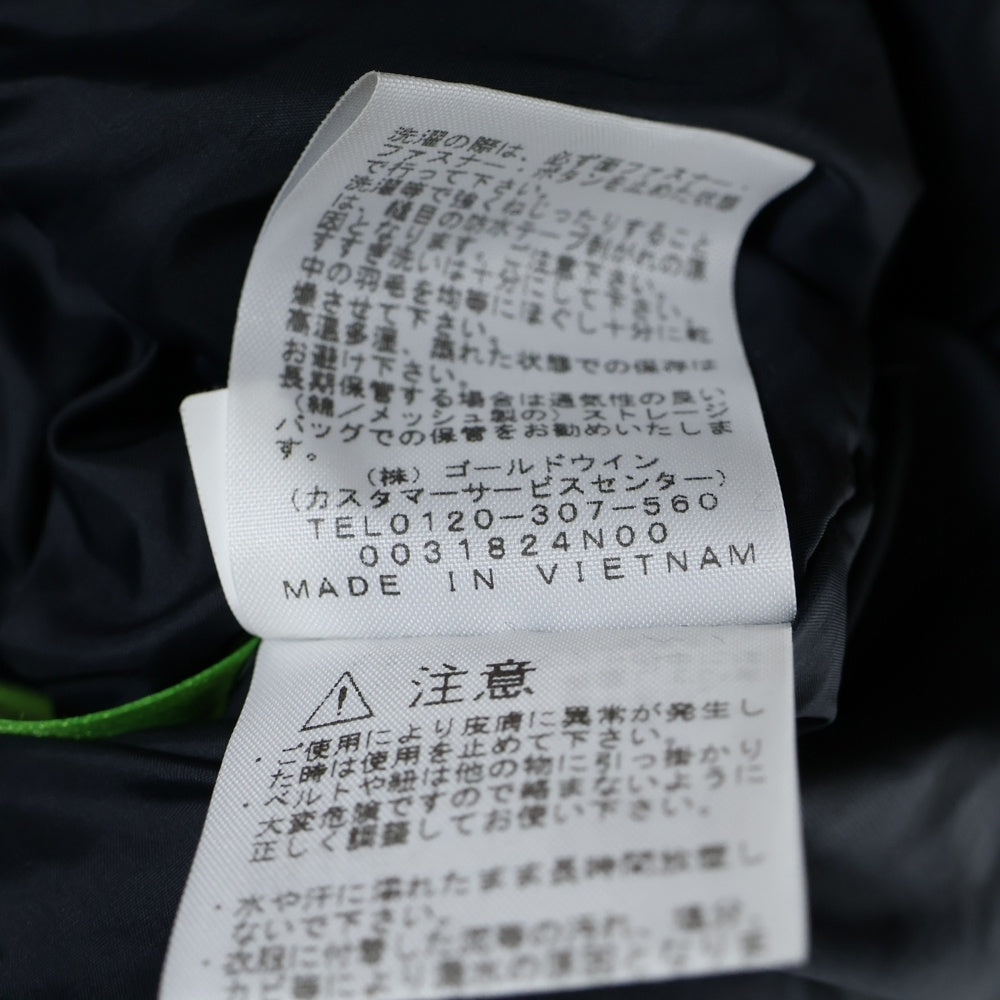 洗濯の際は、必ず面ファスナー、
ファスナー、ボタンを止めた状態
で行って下さい。
洗濯等で強くねじったりすること
は、縫目の防水テープ剥がれの原
因となります。ご注意下さい。
すすぎ洗いは十分にして下さい。
中の羽毛を均等にほぐし十分に乾
燥させて下さい。
高温多湿、濡れた状態での保存は
お避け下さい。
長期保管する場合は通気性の良い
(綿/メッシュ製の)ストレージ
バッグでの保管をお勧めいたしま
す。
(株)ゴールドウイン
(カスタマーサービスセンター)
TEL0120-307-560
0031824N00
MADE IN VIETNAM
注意
・ご使用により皮膚に異常が発生し
た時は使用を止めて下さい。
・ベルトや紐は他の物に引っ掛かり
大変危険ですので絡まないように
正しく調整してお使い下さい。
・水や汗に濡れたまま長時間放置し
ないで下さい。
・衣服に付着した泥等の汚れ、塩分、
カビ等により漏水の原因となりま